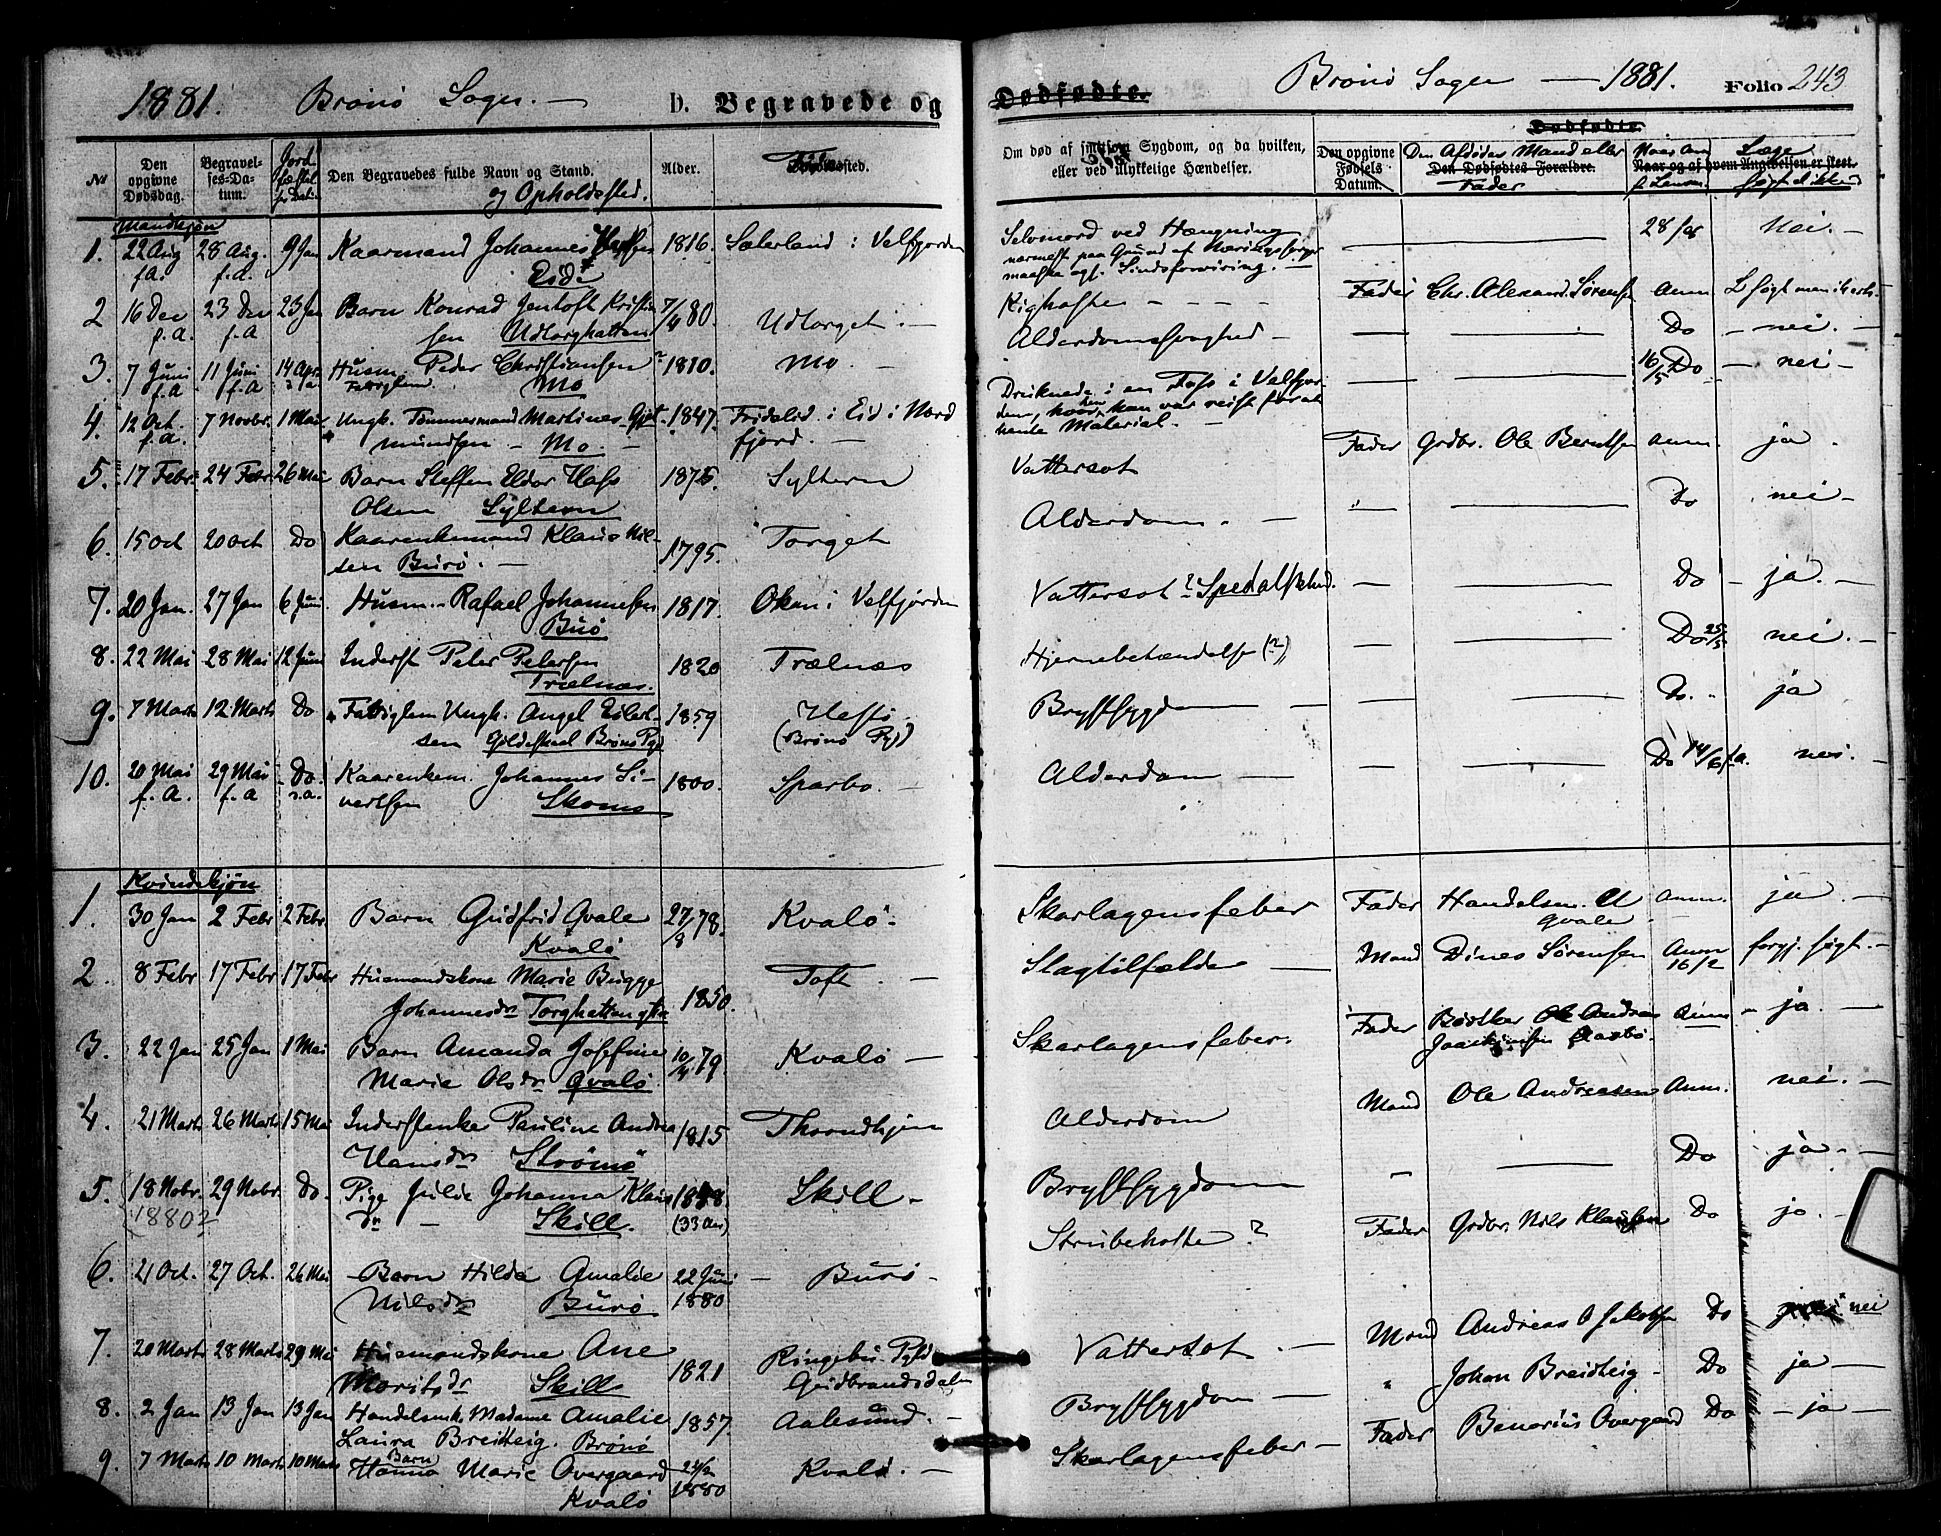 1881. Brönö Sogn. — D. Begravede og
№
Den opgivne Dødsdag.
Begravelses-Datum.
Jordfæstelses Datum
Den Begravedes fulde Navn og Stand.
og Opholdssted.
Alder.
Födested.
Mandkjøn
1. 22 Aug f.a. 28 Aug. f.a. 9 Jan Kaarmand Johannes 1816. Sæterland i Velfjorden
Eide
2 16 Dec f.a. 23 Dec f.a 23 Jan Barn Konrad Jentoft Kristian 7/4 80. Udtorget. —
sen Udtorghatten
3. 7 Juni f.a 11 Juni f.a 14 Apr Husm. Peder Christiansen ? 1810. Mo. —
Fattiglem. Mo
4. 12 Oct. f.a. 7 Novbr. 1 Mai Ungk. Tömmermand Martines Gjet 1847. Eid i Nord
mundsen — Mo — fjord. —
5. 17 Febr. 24 Febr 26 Mai Barn Steffen Eldor Hass 1876 Sylteren
Olsen Sylteren
6. 15 Oct 20 Oct Do Kaarenkemand Klaus Nil- 1795. Torget
sen Burö. —
7. 20 Jan. 27 Jan 6 Juni Husm. Rafael Johannesen 1817. i Velfjorden
Burö
8. 22 Mai 28 Mai 12 Juni Inderst Peter Petersen 1820 Trælnæs
Trælnæs.
9. 7 Marts 12 Marts Do Fattiglem Ungk. Angel Eilert- 1859 Hestö.
sen Gildeskaal Brönö Pgd (Brönö Pgj)
10. 20 Mai f.A. 29 Mai f.a Do Kaarenkem. Johannes Si- 1800. Sparbo. —
vertsen Skomo
Kvindekjøn
1. 30 Jan 2 Febr 2 Febr. Barn Gudfrid Qvale 27/8 78. Kvalö.
Kvalö
2. 8 Febr 17 Febr 17 Febr Husmandskone Marie Bugge 1850. Toft. —
Johannesdr Torghatten
3. 22 Jan 25 Jan 1 Mai Barn Amanda Josefine 10/4 79 Kvalö —
Marie Olsdr Qvalö
4. 21 Marts 26 Marts 15 Mai Inderstenke Pauline Andrea 1815 Throndhjem
Hansdr Strömö
5. 18 Nobr. 29 Nobr. Do. Pige Julie Johanna Klaus 1848. Skill —
1880? dr — Skill. (33 Aar)
6. 21 Oct. 27 Oct. 26 Mai Barn Hilda Amalie 22 Juni 1880 — Burö.
Nilsdr Burö
7. 20 Marts 28 Marts 29 Mai Husmandskone Ane 1821 Ringebu. Pgld
Moritsdr Skill Gudbrandsdalen
8. 2 Jan 13 Jan 13 Jan Handelsmk. Madame Amalie 1857. Aalesund. —
Laura Breiteig. Brönö
9. 7 Marts 10 Marts 10 Marts Barn Hanna Marie Overgaard 24/2 1880 Kvalö. —
Kvalö
Dødfødte.
Brönö Sogn — 1881. Folio 243
Om død af smitsom Sygdom, og da hvilken,
eller ved ulykkelige Hændelser.
Den opgivne Fødsels Datum.
Den Afdödes Mand eller
Den Dødfødtes Forældre.
Fader
Dødfødte
Naar og af hvem Angivelsen er skeet.
Læge
Selvmord ved Hængning — — 28/8 Nei. —
nærmest paa Grund af Næringssorger
maaske ogs. Sindsforvirring. —
Kighoste — — — — Fader Chr. Alexand. Sörensen anm. L sögt men
Alderdomssvaghed — — — Do — nei. —
16/5 Do — nei —
Druknede i en Fos i Velfjor
den, hvor hen han var reist for at
hente Material. —
Fader Grdbr. Ole Berntsen anm. ja.
Vattersot
Alderdom. — " — Do nei —
Vattersot ? Spedalskhed. — — Do — ja. —
Hjernebetændelse (?) — Do 25/5 nei. —
Brystsygdom — — — Do. " ja
Alderdom — — Do 14/6 nei.
Skarlagensfeber Fader Handelsm. Qvale anm. ja. —
Slagtilfælde — Mand Dines Sörensen Anm 16/2 forgj. sögt. —
Skarlagensfeber. Fader Bödker Ole Andreas Anm — ja. —
Alderdom Mand Ole Andreasen Anm. nei. —
Brystsygdom " — Do ja. —
Strubehoste ? Fader Grdbr. Nils Klausen Do ja. —
Vattersot. — Mand Andreas O Jakobsen Do nei
Brystsygdom — " Johan Breidteig — Do ja —
Skarlagensfeber — Fader Benarius Overgaard Do — ja —